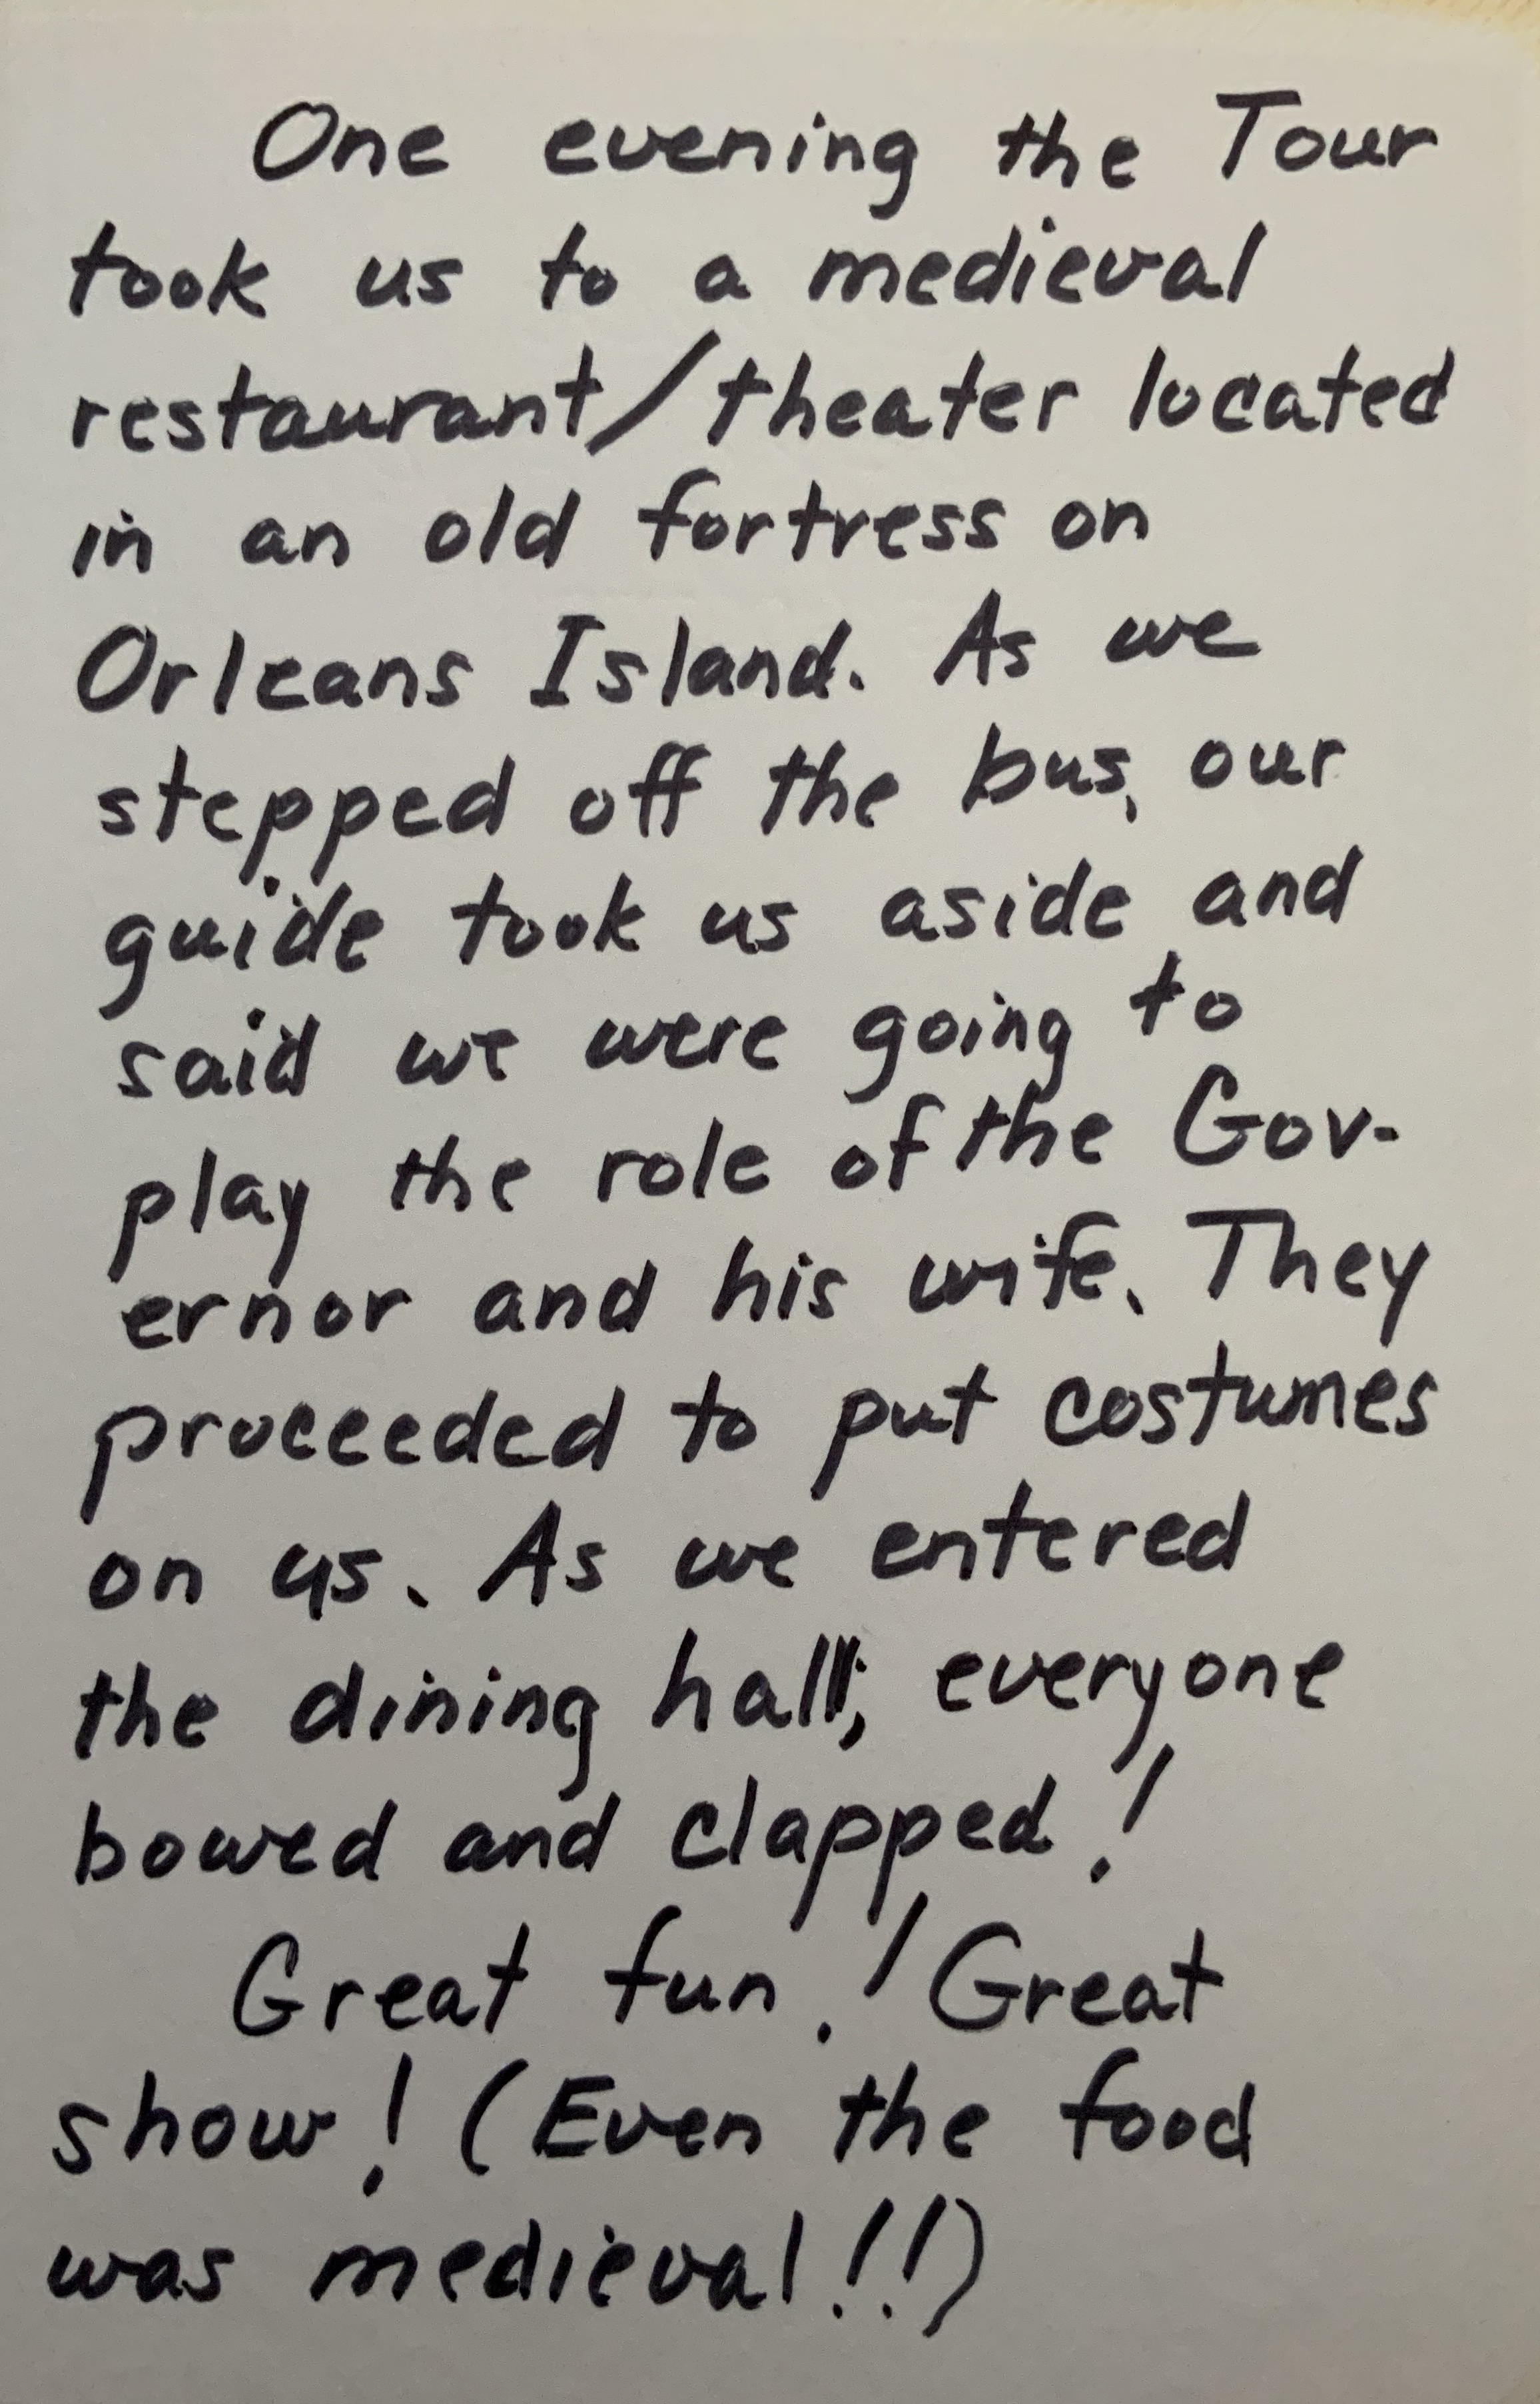 One evening the Tour
took us to a medieval
restaurant/theater located
in an old fortress on
Orleans Island. As we
stepped off the bus, our
guide took us aside and
said we were going to
play the role of the Gov-
ernor and his wife. They
proceeded to put costumes
on us. As we entered
the dining hall, everyone
bowed and clapped!
Great fun! Great
show! (Even the food
was medieval!!)